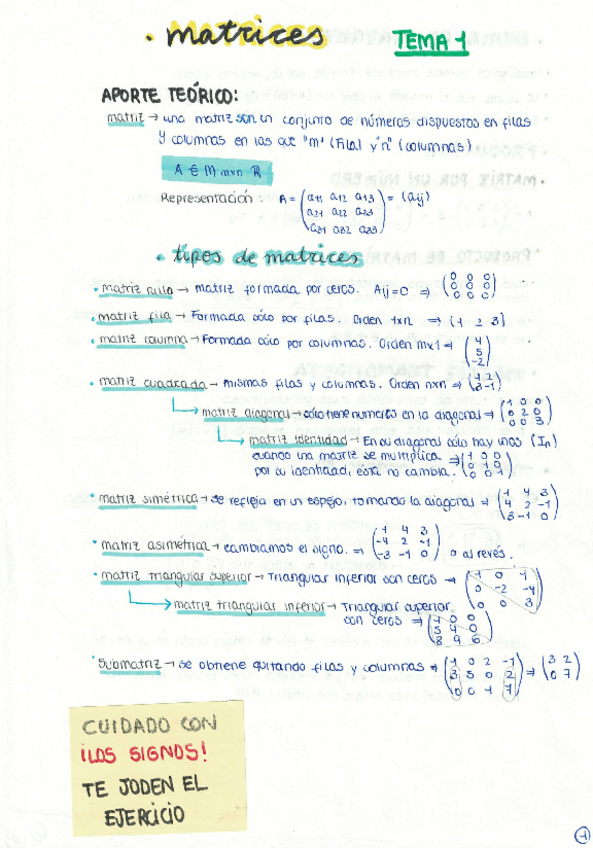 • matrices TEMA 1
APORTE TEÓRICO:
matriz → una matriz son un conjunto de números dispuestos en filas
y columnas en las que "m" (fila) y "n" (columnas)
A ∈ M mxn R
Representación: A = (a11 a12 a13) = (aij)
a21 a22 a23
a31 a32 a33
• tipos de matrices
• matriz nula → matriz formada por ceros. Aij=0 ⇒ (0 0 0)
0 0 0
0 0 0
• matriz fila → Formada sólo por filas. Orden 1xn ⇒ (1 2 3)
• matriz columna → Formada sólo por columnas. Orden mx1 ⇒ (4)
5
-2
• matriz cuadrada → mismas filas y columnas. Orden nxn ⇒ (1 2)
3 -1
matriz diagonal → sólo tiene números en la diagonal ⇒ (1 0 0)
0 2 0
0 0 3
matriz identidad → En su diagonal sólo hay unos (In)
cuando una matriz se multiplica ⇒ (1 0 0)
por su identidad, esta no cambia. 0 1 0
0 0 1
• matriz simétrica → se refleja en un espejo, tomando la diagonal ⇒ (1 4 3)
4 2 -1
3 -1 0
• matriz asimétrica → cambiamos el signo. ⇒ (1 4 3) o al revés.
-4 2 -1
-3 -1 0
• matriz triangular superior → Triangular inferior son ceros → (1 0 1)
0 -2 -4
0 0 3
matriz triangular inferior → Triangular superior
son ceros ⇒ (1 0 0)
5 4 0
8 9 6
• Submatriz → se obtiene quitando filas y columnas ⇒ (1 0 2 -1) ⇒ (3 2)
3 5 0 2 0 7
0 0 1 7
CUIDADO CON
¡LOS SIGNOS!
TE JODEN EL
EJERCICIO
1